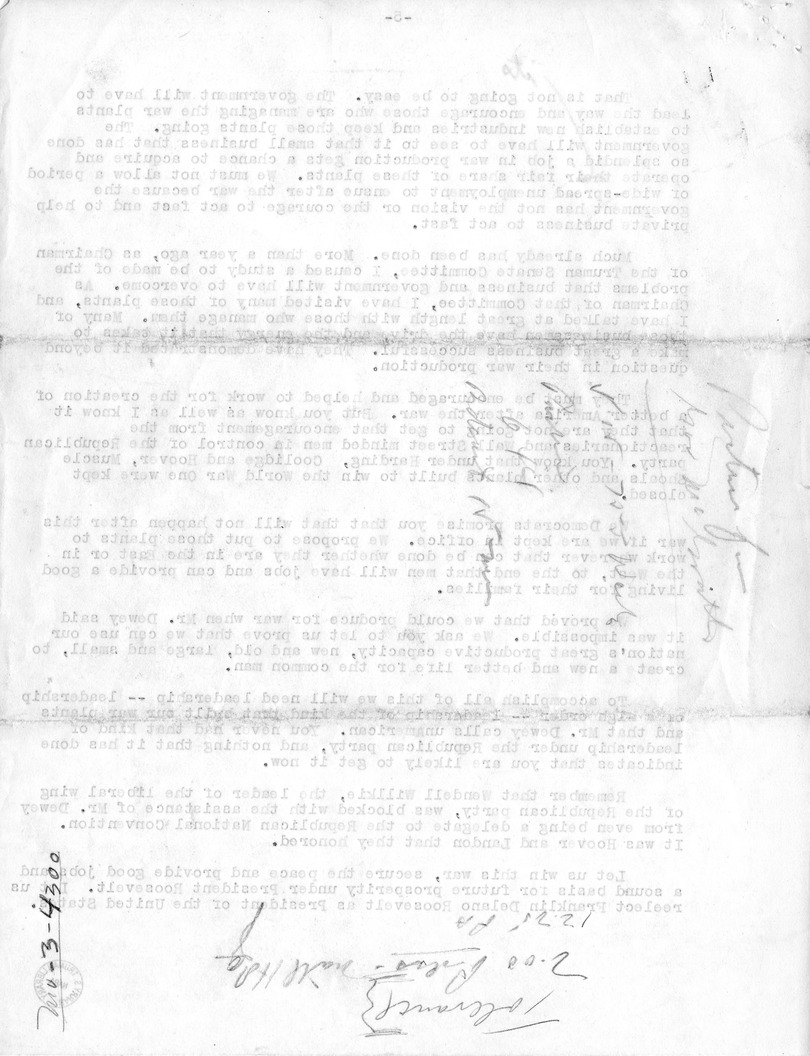 -5-
That is not going to be easy. The government will have to
lead the way and encourage those who are managing the war plants
to establish new industries and keep those plants going. The
government will have to see to it that small business that has done
so splendid a job in war production gets a chance to acquire and
operate their fair share of these plants. We must not allow a period
of wide-spread unemployment to ensue after the war because the
government has not the vision or the courage to act fast and to help
private business to act fast.
Much already has been done. More than a year ago, as Chairman
of the Truman Senate Committee, I caused a study to be made of the
problems that business and government will have to overcome. As
Chairman of that Committee, I have visited many of those plants, and
I have talked at great length with those who manage them. Many of
those businessmen have the drive and the energy that it takes to
make a great business successful. They have demonstrated it beyond
question in their war production.
They must be encouraged and helped to work for the creation of
a better America after the war. But you know as well as I know it
that they are not going to get that encouragement from the
reactionaries and Wall Street minded men in control of the Republican
party. You know that under Harding, Coolidge and Hoover, Muscle
Shoals and other plants built to win the World War One were kept
closed.
Democrats promise you that that will not happen after this
war if we are kept in office. We propose to put those plants to
work wherever that can be done whether they are in the East or in
the West, to the end that men will have jobs and can provide a good
living for their families.
We proved that we could produce for war when Mr. Dewey said
it was impossible. We ask you to let us prove that we can use our
nation's great productive capacity, new and old, large and small, to
create a new and better life for the common man.
To accomplish all of this we will need leadership -- leadership
of a high order -- leadership of the kind that built our war plants
and that Mr. Dewey calls unamerican. You never had that kind of
leadership under the Republican party, and nothing that it has done
indicates that you are likely to get it now.
Remember that Wendell Willkie, the leader of the liberal wing
of the Republican party, was blocked with the assistance of Mr. Dewey
from even being a delegate to the Republican National Convention.
It was Hoover and Landon that they honored.
Let us win this war, secure the peace and provide good jobs and
a sound basis for future prosperity under President Roosevelt. Let us
reelect Franklin Delano Roosevelt as President of the United States.
12.25
2.00
Tolerance
Niv-3-4300